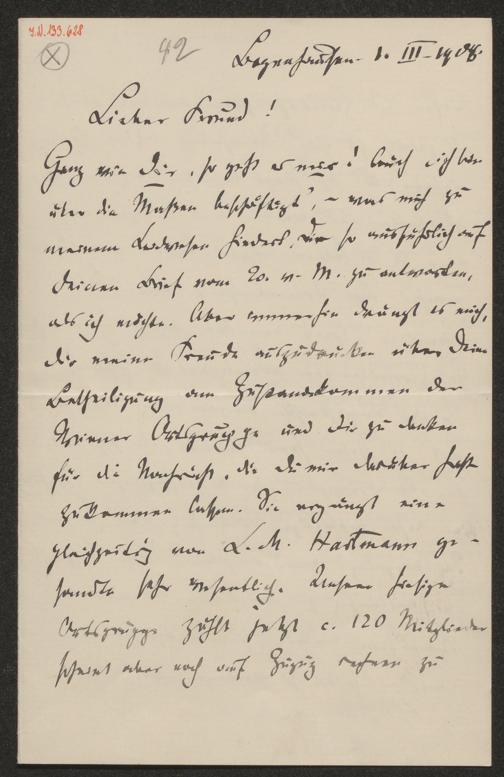 J.N. 133.628
42
Bogenhausen 1. III - 1908.
Lieber Freund!
Ganz wie Dir, so geht es mir! Auch ich bin
über die Maßen beschäftigt, – was mich zu
meinem Leidwesen hindert, Dir so ausführlich auf
Deinen Brief vom 20. v. M. zu antworten,
als ich möchte. Aber immerhin drängt es mich,
Dir meine Freude auszudrücken über Deine
Betheiligung am Zustandekommen der
Wiener Ortsgruppe und Dir zu danken
für die Nachricht, die Du mir darüber hast
zukommen lassen. Sie ergänzt eine
gleichzeitig von L. M. Hartmann ge-
sandte sehr wesentlich. Unsere hiesige
Ortsgruppe zählt jetzt c. 120 Mitglieder
scheint aber noch auf Zuzug rechnen zu